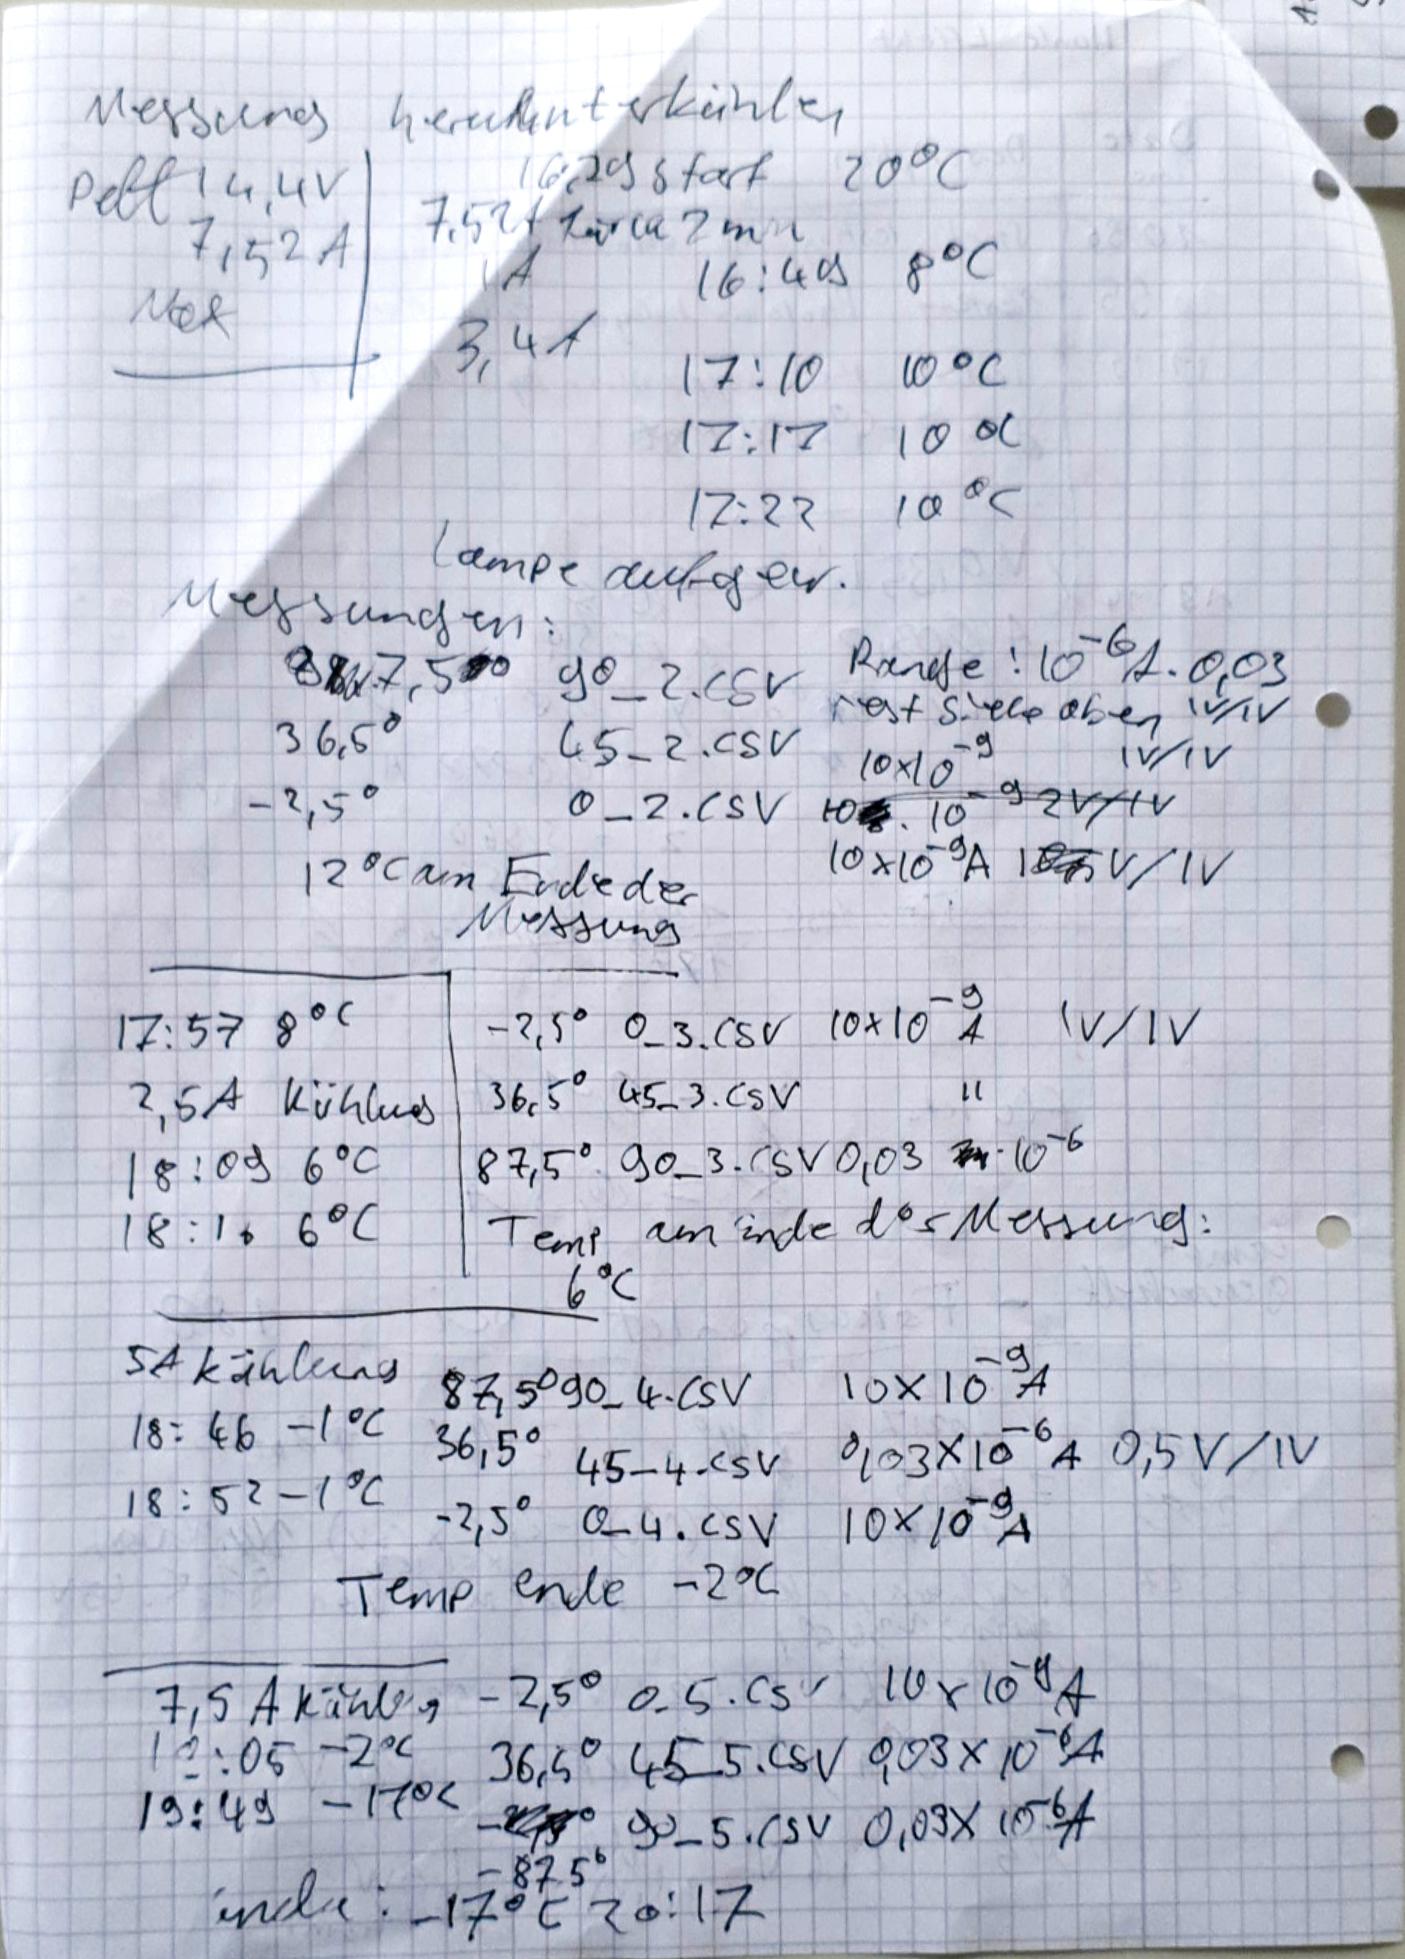 Messung herunterkühlen
Pelt 14,4V
7,52A
Max
16:29 start 20°C
7,52A für ca 2 min
1A 16:49 8°C
3,4A
17:10 10°C
17:17 10°C
17:22 10°C
Lampe aufgew.
Messungen:
87,5° 90_2.csv Range: 10^-6 A · 0,03
rest siehe oben 1V/1V
36,5° 45_2.csv 10x10^-9 1V/1V
-2,5° 0_2.csv 10 · 10^-9 2V/1V
10x10^-9A 1V/1V
12°C am Ende der
Messung
17:57 8°C
2,5A Kühlung
18:09 6°C
18:16 6°C
-2,5° 0_3.csv 10x10^-9 A 1V/1V
36,5° 45_3.csv "
87,5° 90_3.csv 0,03 · 10^-6
Temp am ende der Messung:
6°C
5A kühlung
18:46 -1°C
18:52 -1°C
87,5° 90_4.csv 10x10^-9A
36,5° 45_4.csv 0,03x10^-6 A 0,5V/1V
-2,5° 0_4.csv 10x10^-9A
Temp ende -2°C
7,5A kühlung
19:05 -2°C
19:49 -17°C
-2,5° 0_5.csv 10x10^-9A
36,5° 45_5.csv 0,03x10^-6A
90_5.csv 0,03x10^-6A
-87,5°
ende: -17°C 20:17